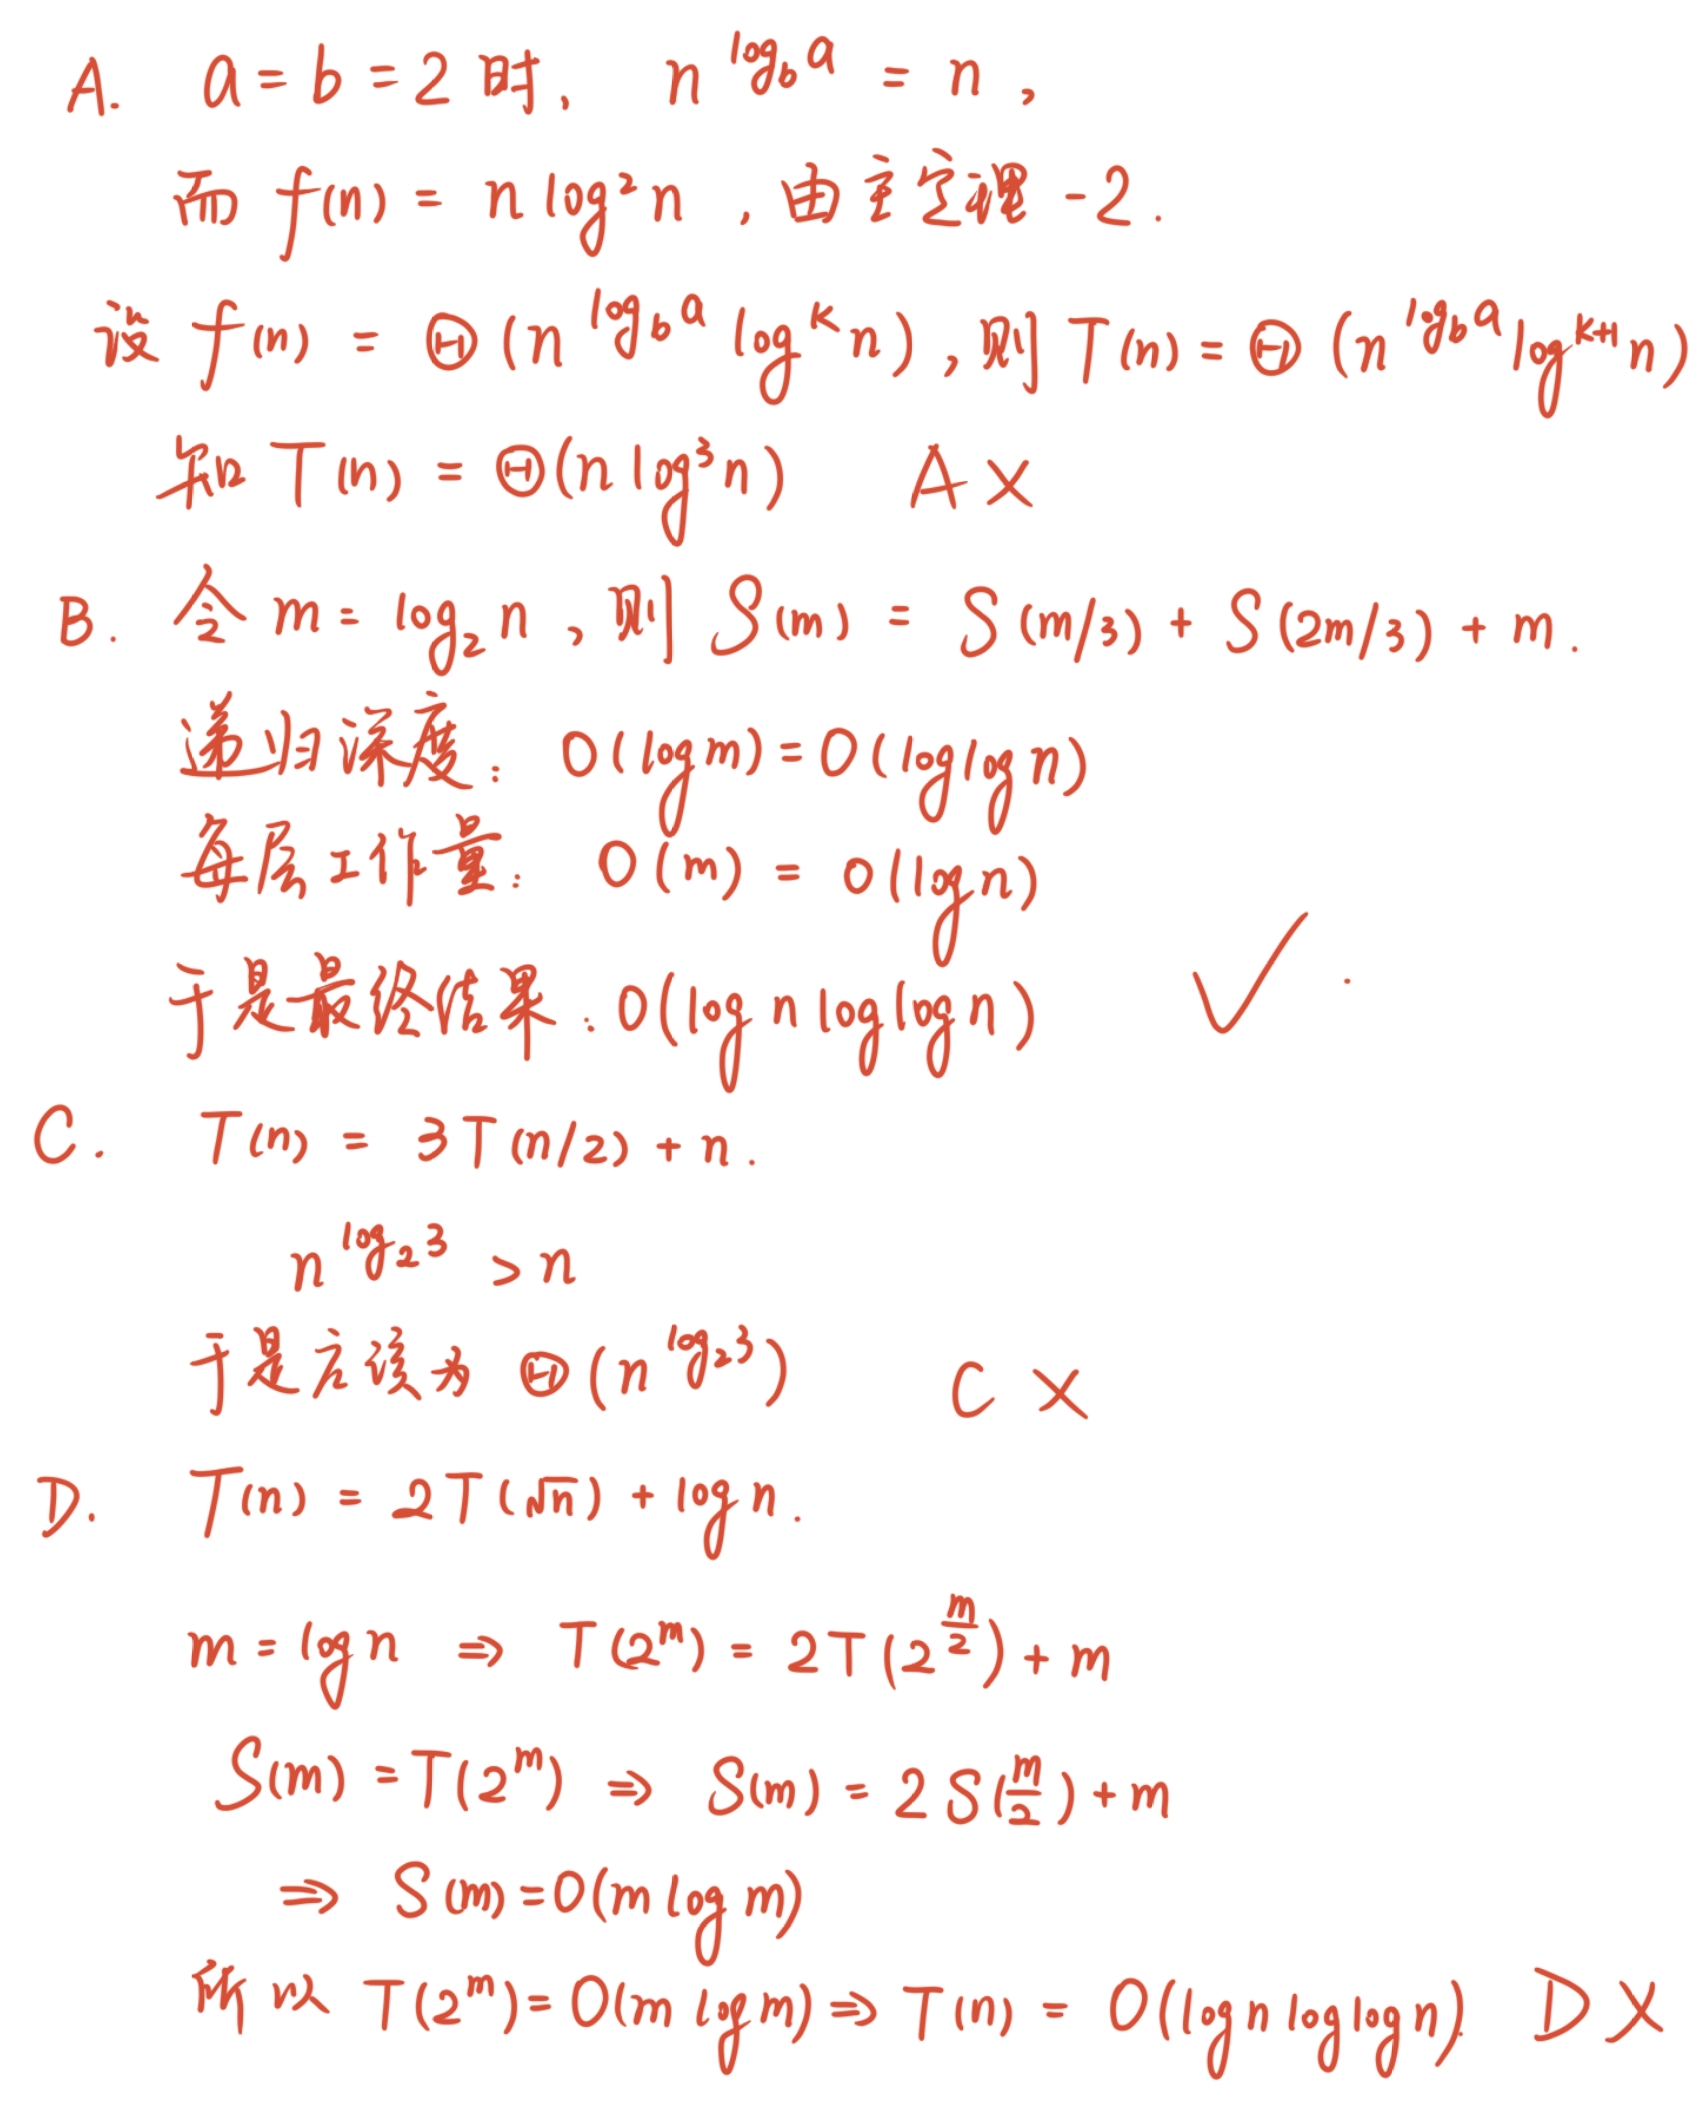 A. a = b = 2 时, n^{log_b a} = n ,
而 f(n) = n log² n , 由主定理 - 2 .
设 f(n) = Θ (n^{log_b a} log^k n) , 则 T(n) = Θ (n^{log_b a} log^{k+1} n)
知 T(n) = Θ(n log³ n) A ×
B. 令 m = log₂ n , 则 S(m) = S(m/3) + S(2m/3) + m .
递归深度: O(log m) = O(log log n)
每层工作量: O(m) = O(log n)
于是最终结果: O(log n log log n) ✓ .
C. T(n) = 3T(n/2) + n .
n^{log₂ 3} > n
于是应该为 Θ (n^{log₂ 3}) C ×
D. T(n) = 2T(√n) + log n .
m = log n ⇒ T(2^m) = 2T(2^{m/2}) + m
S(m) = T(2^m) ⇒ S(m) = 2S(m/2) + m
⇒ S(m) = O(m log m)
所以 T(2^m) = O(m log m) ⇒ T(n) = O(log n log log n). D ×